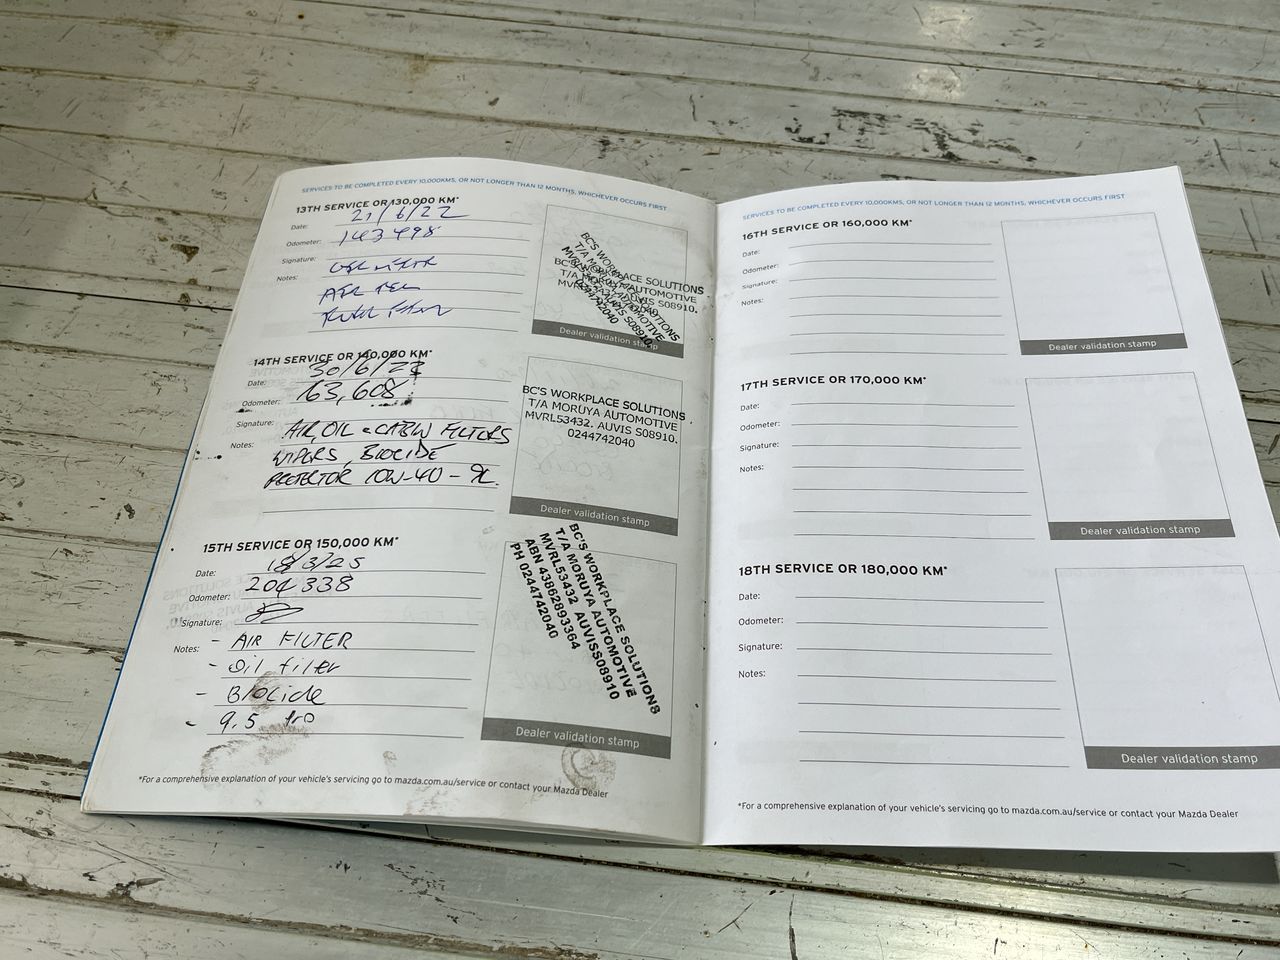 SERVICES TO BE COMPLETED EVERY 10,000KMS, OR NOT LONGER THAN 12 MONTHS, WHICHEVER OCCURS FIRST
13TH SERVICE OR 130,000 KM*
Date: 21/6/22
Odometer: 143498
Signature:
Notes:
AIR
BC'S WORKPLACE SOLUTIONS
T/A MORUYA AUTOMOTIVE
MVRL53432. AUVIS S08910.
0244742040
Dealer validation stamp
14TH SERVICE OR 140,000 KM*
Date: 30/6/23
Odometer: 163,608
Signature:
Notes: AIR, OIL & CABIN FILTORS
WIPERS, BIOCIDE
PROTECTOR 10W-40 - 9L.
BC'S WORKPLACE SOLUTIONS
T/A MORUYA AUTOMOTIVE
MVRL53432. AUVIS S08910.
0244742040
Dealer validation stamp
15TH SERVICE OR 150,000 KM*
Date: 18/3/25
Odometer: 204338
Signature:
Notes: - AIR FILTER
- Oil filter
- Biocide
- 9.5
BC'S WORKPLACE SOLUTIONS
T/A MORUYA AUTOMOTIVE
MVRL53432 AUVISS08910
ABN 43862893364
PH 0244742040
Dealer validation stamp
*For a comprehensive explanation of your vehicle's servicing go to mazda.com.au/service or contact your Mazda Dealer
SERVICES TO BE COMPLETED EVERY 10,000KMS, OR NOT LONGER THAN 12 MONTHS, WHICHEVER OCCURS FIRST
16TH SERVICE OR 160,000 KM*
Date:
Odometer:
Signature:
Notes:
Dealer validation stamp
17TH SERVICE OR 170,000 KM*
Date:
Odometer:
Signature:
Notes:
Dealer validation stamp
18TH SERVICE OR 180,000 KM*
Date:
Odometer:
Signature:
Notes:
Dealer validation stamp
*For a comprehensive explanation of your vehicle's servicing go to mazda.com.au/service or contact your Mazda Dealer